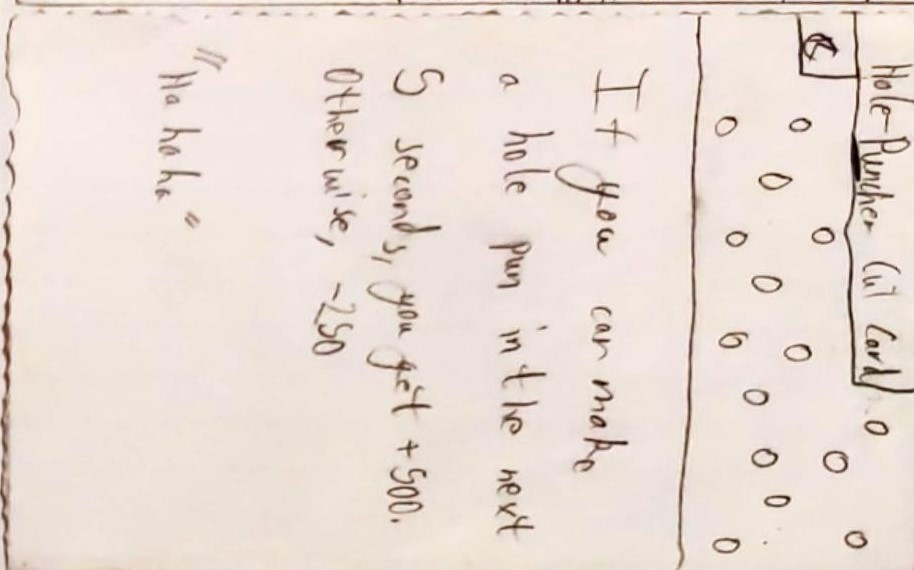 Hole-Puncher Cut Card
C
If you can make
a hole pun in the next
5 seconds, you get +500.
Otherwise, -250
"Ha ha ha"